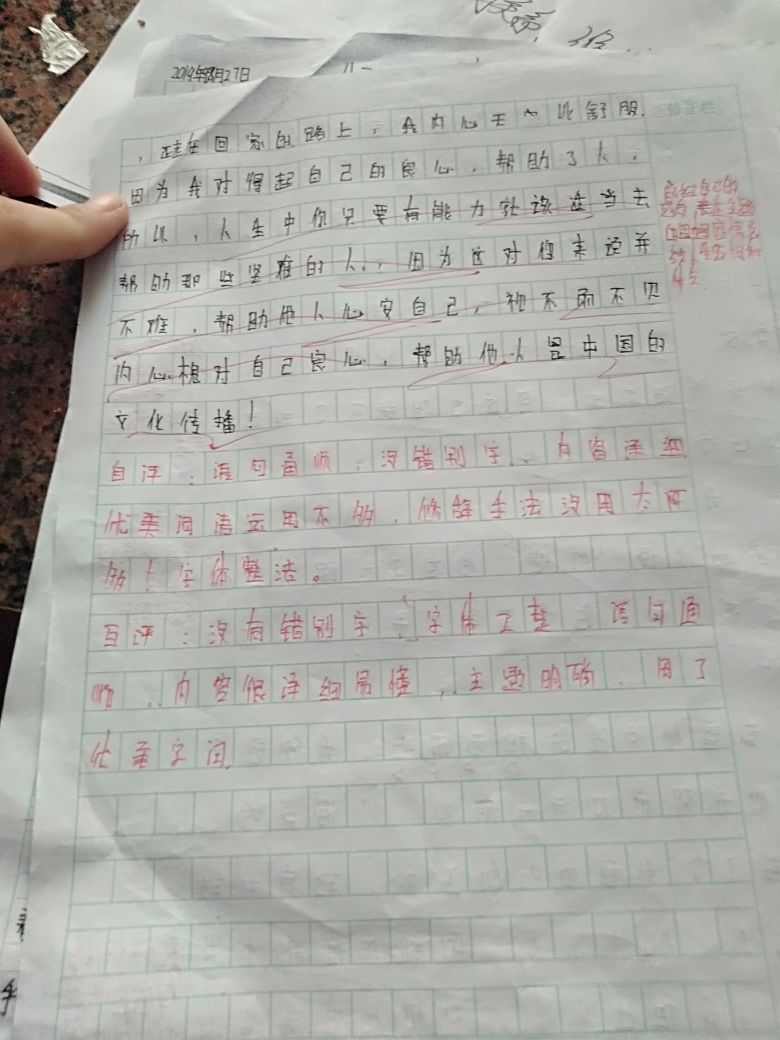 2019年8月27日
，走在回家的路上，我内心无比舒服.
因为我对得起自己的良心，帮助了人，
所以，人生中你只要有能力就该适当去
帮助那些坚难的人，因为这对你来说并
不难，帮助他人心安自己，视不而不见
内心想对自己良心，帮助他人是中国的
文化传播！
自评：语句通顺，没错别字，内容详细
优美词语运用不够，修辞手法没用太
够！字体整洁。
互评：没有错别字，字体工整，语句通
顺，内容很详细易懂，主题明确，用了
优美字词.